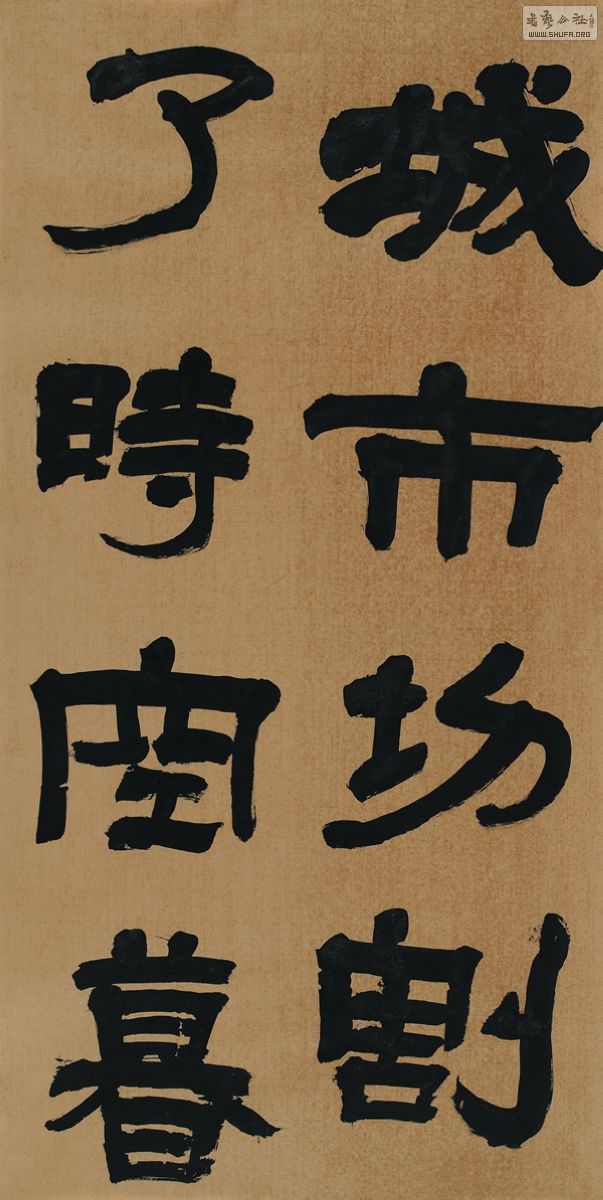 城市切割
了時空暮
書藝公社
WWW.SHUFA.ORG